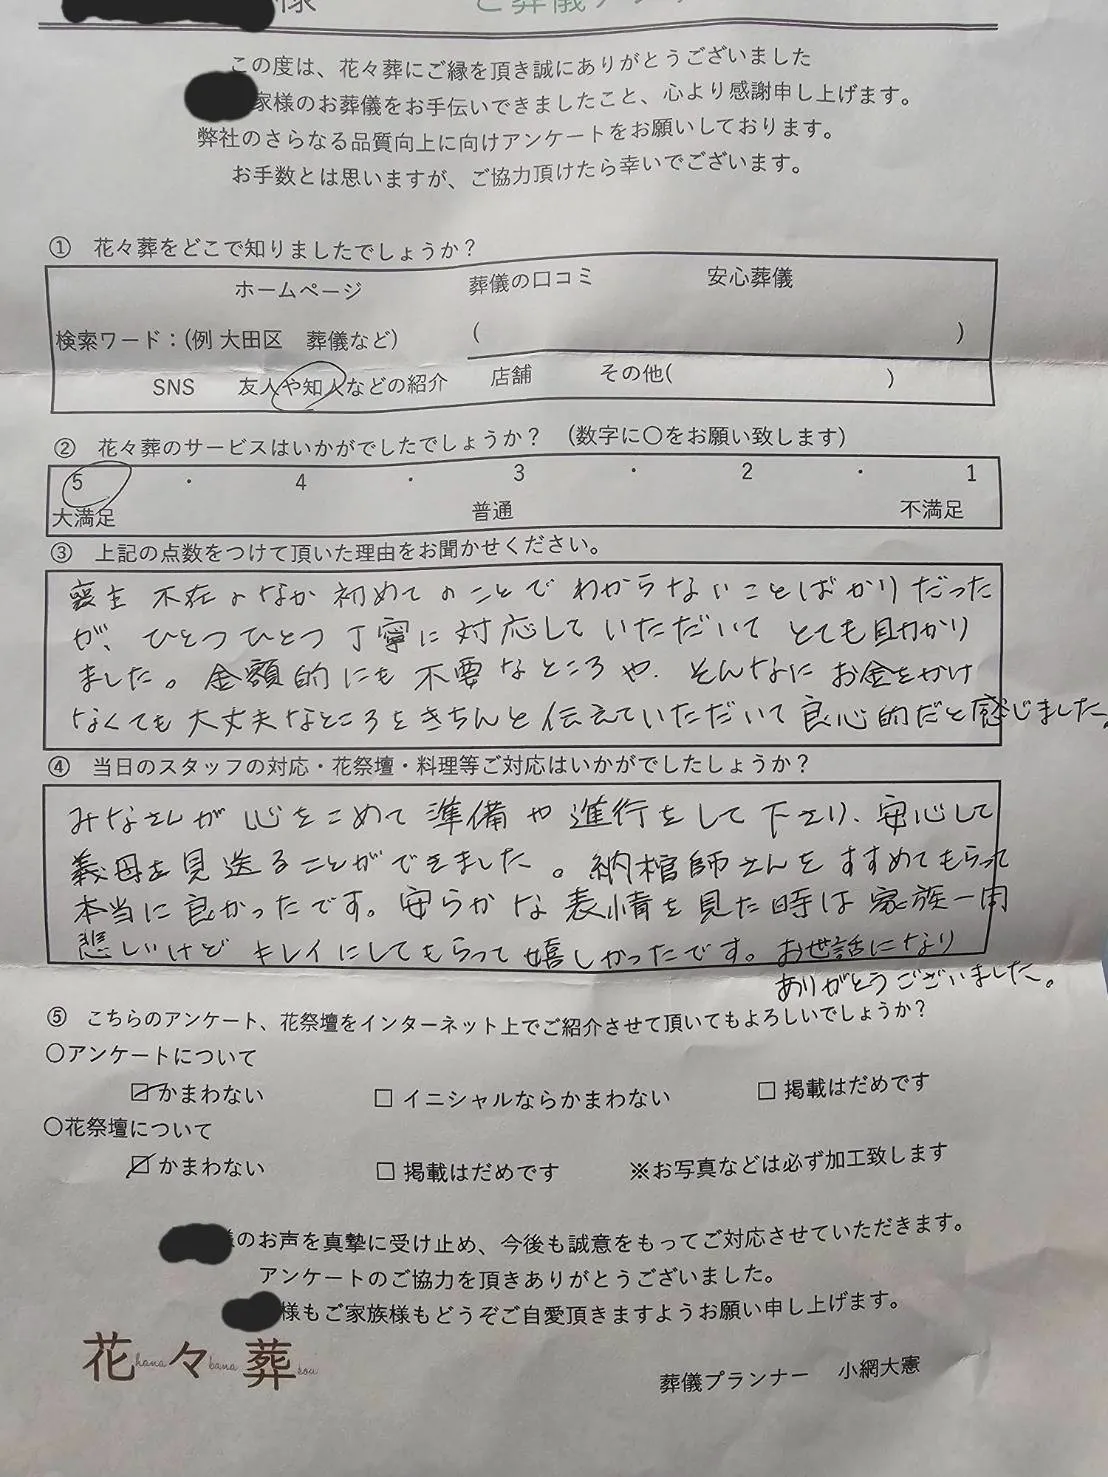 様 ご葬儀アン
この度は、花々葬にご縁を頂き誠にありがとうございました
家様のお葬儀をお手伝いできましたこと、心より感謝申し上げます。
弊社のさらなる品質向上に向けアンケートをお願いしております。
お手数とは思いますが、ご協力頂けたら幸いでございます。
① 花々葬をどこで知りましたでしょうか？
ホームページ 葬儀の口コミ 安心葬儀
検索ワード：(例 大田区 葬儀など) ( )
SNS 友人や知人などの紹介 店舗 その他( )
② 花々葬のサービスはいかがでしたでしょうか？ (数字に〇をお願い致します)
5 ・ 4 ・ 3 ・ 2 ・ 1
大満足 普通 不満足
③ 上記の点数をつけて頂いた理由をお聞かせください。
喪主不在のなか初めてのことでわからないことばかりだった
が、ひとつひとつ丁寧に対応していただいてとても助かり
ました。金額的にも不要なところや、そんなにお金をかけ
なくても大丈夫なところをきちんと伝えていただいて良心的だと感じました。
④ 当日のスタッフの対応・花祭壇・料理等ご対応はいかがでしたしょうか？
みなさんが心をこめて準備や進行をして下さり、安心して
義母を見送ることができました。納棺師さんをすすめてもらって
本当に良かったです。安らかな表情を見た時は家族一同
悲しいけどキレイにしてもらって嬉しかったです。お世話になり
ありがとうございました。
⑤ こちらのアンケート、花祭壇をインターネット上でご紹介させて頂いてもよろしいでしょうか？
〇アンケートについて
☑かまわない □ イニシャルならかまわない □ 掲載はだめです
〇花祭壇について
☑かまわない □ 掲載はだめです ※お写真などは必ず加工致します
様のお声を真摯に受け止め、今後も誠意をもってご対応させていただきます。
アンケートのご協力を頂きありがとうございました。
様もご家族様もどうぞご自愛頂きますようお願い申し上げます。
花hana々bana葬sou
葬儀プランナー 小網大憲